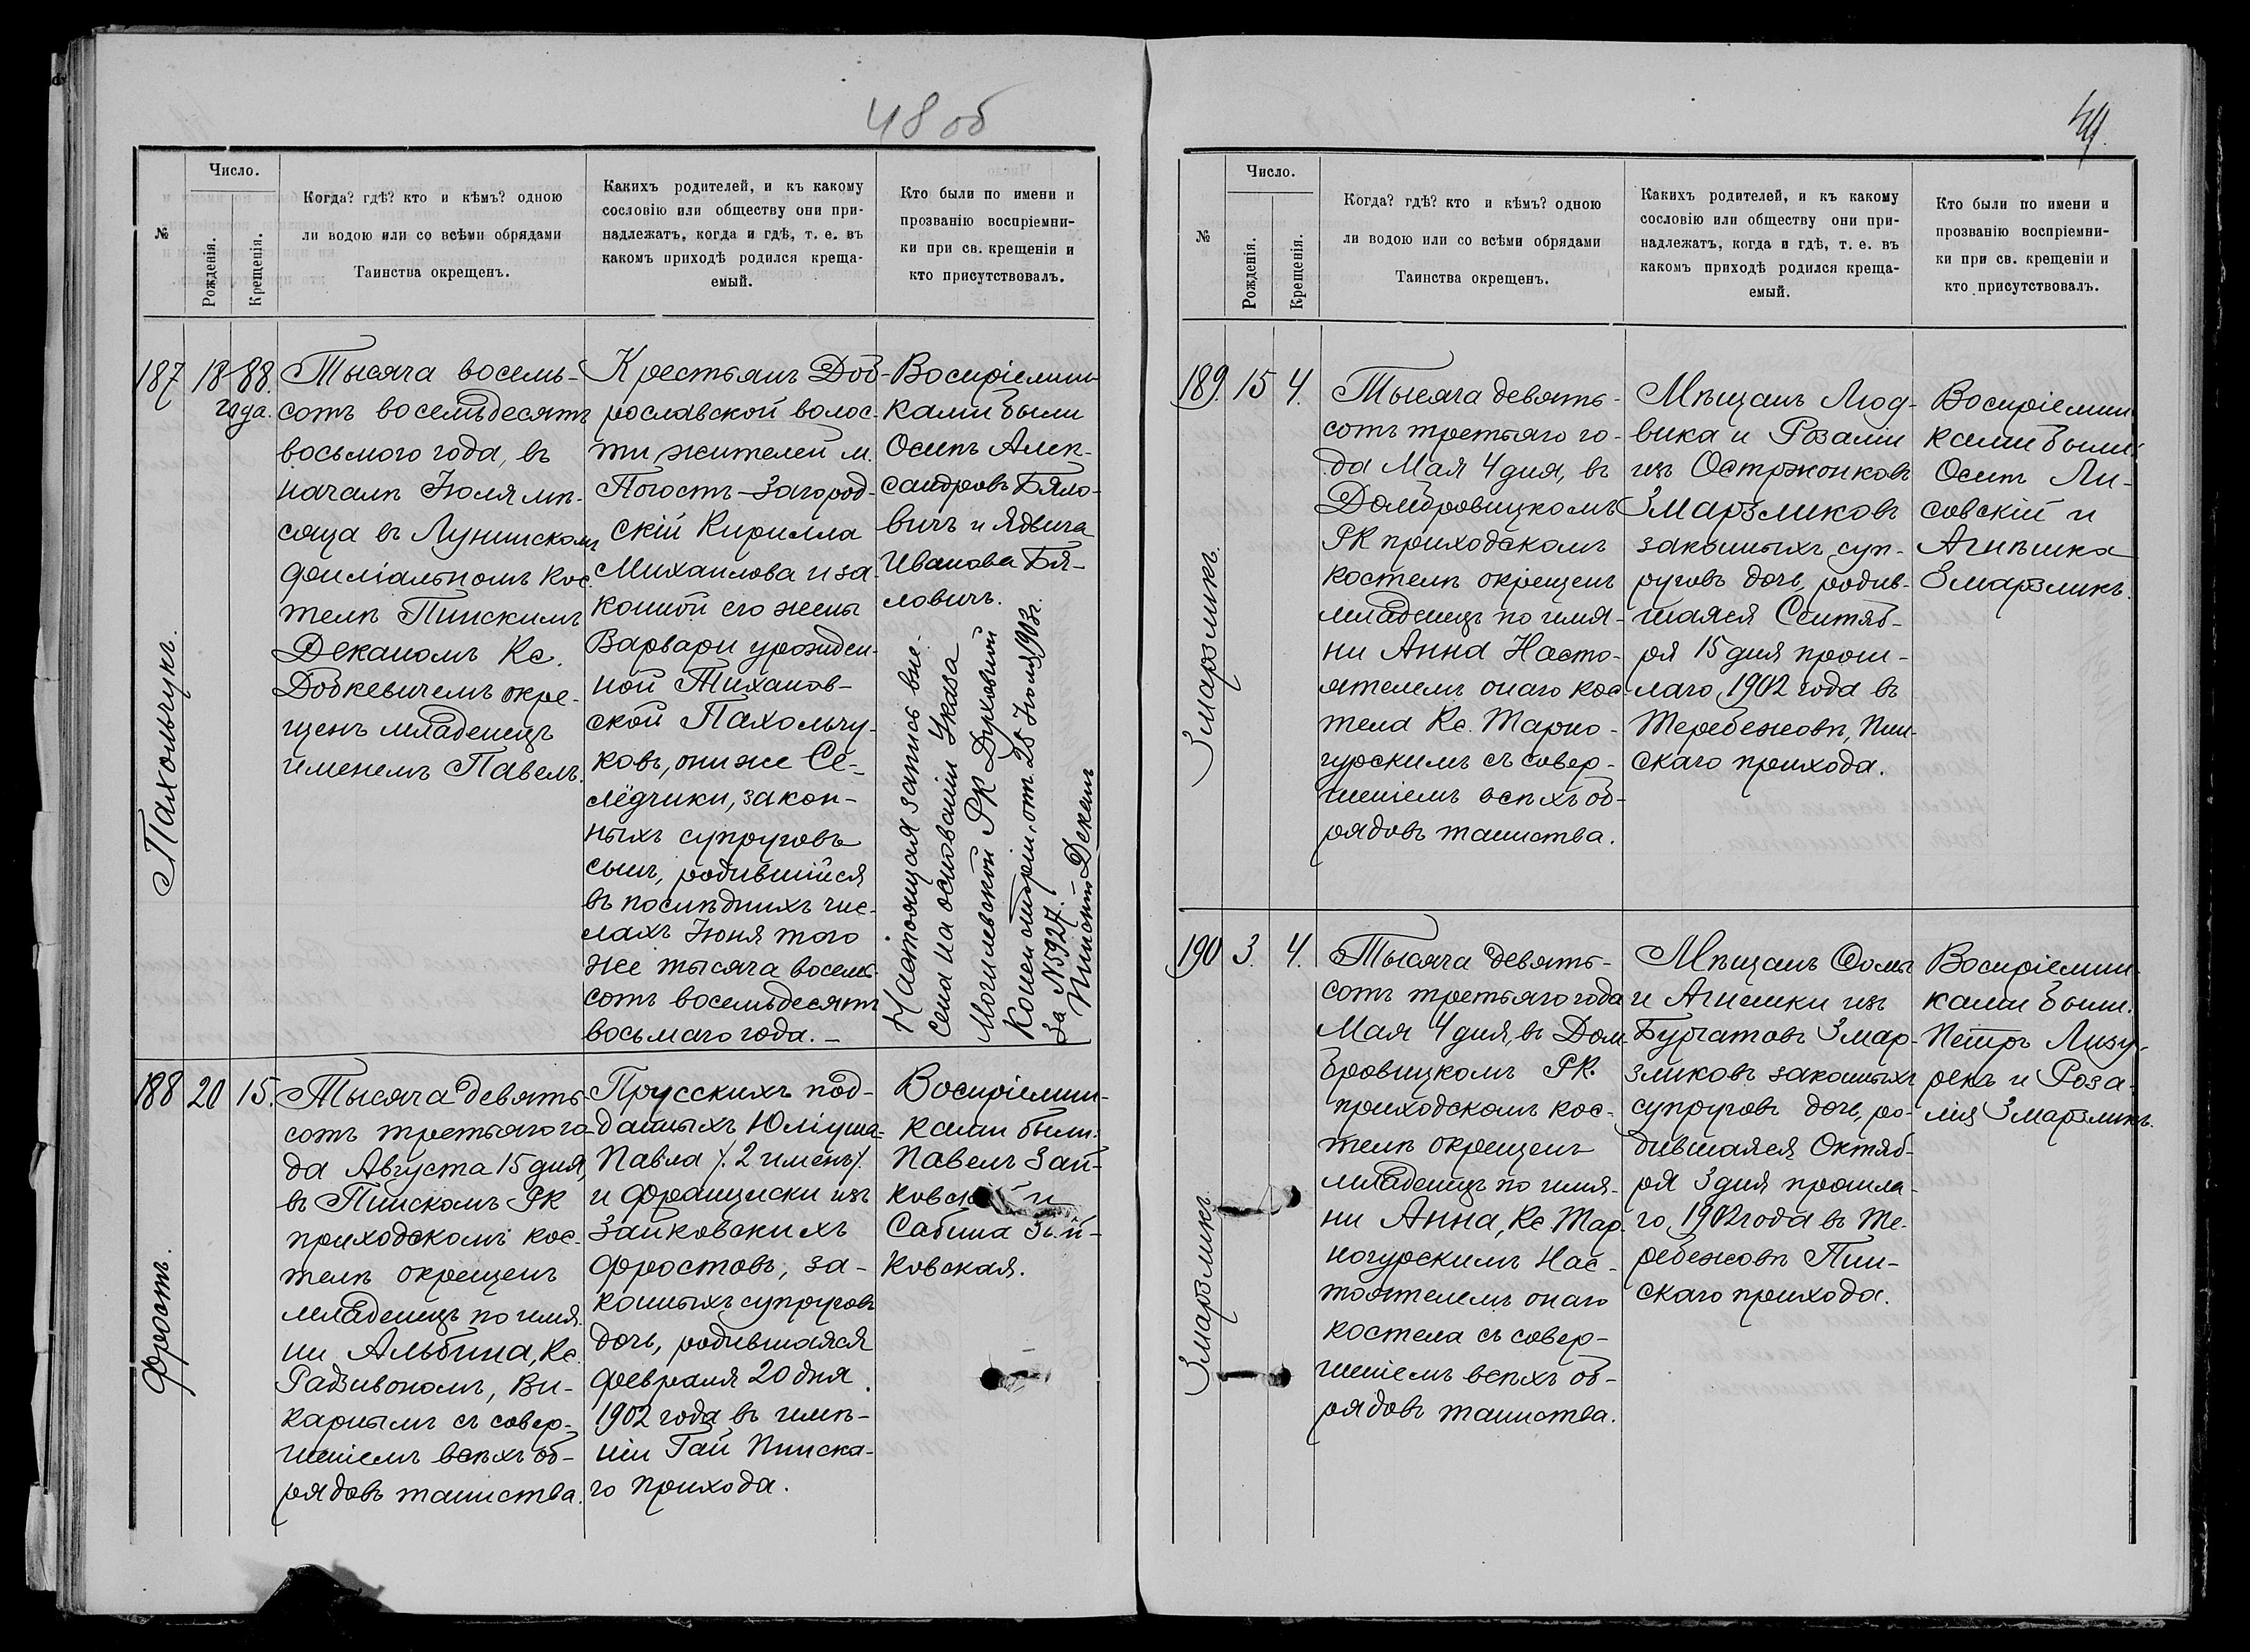 48 об
Число.
№
Рожденія.
Крещенія.
Когда? гдѣ? кто и кѣмъ? одною
ли водою или со всѣми обрядами
Таинства окрещенъ.
Какихъ родителей, и къ какому
сословію или обществу они при-
надлежатъ, когда и гдѣ, т. е. въ
какомъ приходѣ родился креща-
емый.
Кто были по имени и
прозванію воспріемни-
ки при св. крещеніи и
кто присутствовалъ.
187
18-88.
года.
Пахольчукъ.
Тысяча восемь-
сотъ восемьдесятъ
восьмого года, въ
началѣ Іюля мѣ-
сяца въ Лунинскомъ
филіальномъ кос-
телѣ Пинскимъ
Деканомъ Кс.
Добкевичемъ окре-
щенъ младенецъ
именемъ Павелъ.
Крестьянъ Доб-
рославской волос-
ти, жителей м.
Погостъ-Загород-
скій Кирилла
Михаилова и за-
конной его жены
Варвары урожден-
ной Тиханов-
ской Пахольчу-
ковъ, они же Се-
лёдчики, закон-
ныхъ супруговъ
сынъ, родившійся
въ послѣднихъ чис-
лахъ Іюня того
же тысяча восемь-
сотъ восемьдесятъ
восьмаго года. –
Воспріемни-
ками были
Осипъ Алек-
сандровъ Бяло-
вичъ и Ядвига
Иванова Бя-
ловичъ.
Настоящая запись вне-
сена на основаніи Указа
Могилевской РК Духовной
Консисторіи, отъ 28 Іюля 1903 г.
за № 5927. –
Пинскій Деканъ
188
20
15.
Фростъ.
Тысяча девять-
сотъ третьяго го-
да Августа 15 дня,
въ Пинскомъ РК
приходскомъ кос-
телѣ окрещенъ
младенецъ по имя-
ни Альбина, Кс.
Радзивономъ, Ви-
карнымъ съ совер-
шеніемъ всѣхъ об-
рядовъ таинства.
Прусскихъ под-
данныхъ Юліуша-
Павла /. 2 именъ /.
и Франциски изъ
Зайковскихъ
Фростовъ, за-
конныхъ супруговъ
дочь, родившаяся
февраля 20 дня
1902 года въ имѣ-
ніи Гай Пинска-
го прихода.
Воспріемни-
ками были:
Павелъ Зай-
ковскій и
Сабина Зай-
ковская.
49.
Число.
№
Рожденія.
Крещенія.
Когда? гдѣ? кто и кѣмъ? одною
ли водою или со всѣми обрядами
Таинства окрещенъ.
Какихъ родителей, и къ какому
сословію или обществу они при-
надлежатъ, когда и гдѣ, т. е. въ
какомъ приходѣ родился креща-
емый.
Кто были по имени и
прозванію воспріемни-
ки при св. крещеніи и
кто присутствовалъ.
189.
15
4.
Змарзликъ.
Тысяча девять-
сотъ третьяго го-
да Мая 4 дня, въ
Домбровицкомъ
РК приходскомъ
костелѣ окрещенъ
младенецъ по имя-
ни Анна Насто-
ятелемъ онаго кос-
тела Кс. Тарно-
гурскимъ съ совер-
шеніемъ всѣхъ об-
рядовъ таинства.
Мѣщанъ Люд-
вика и Розаліи
изъ Остржонковъ
Змарзликовъ
законныхъ суп-
руговъ дочь, родив-
шаяся Сентяб-
ря 15 дня прош-
лаго, 1902 года въ
Теребежовѣ, Пин-
скаго прихода.
Воспріемни-
ками были:
Осипъ Ли-
совскій и
Агнѣшка
Змарзликъ.
190
3.
4.
Змарзликъ
Тысяча девять-
сотъ третьяго года
Мая 4 дня, въ Дом-
бровицкомъ РК.
приходскомъ кос-
телѣ окрещенъ
младенецъ по имя-
ни Анна, Кс. Тар-
ногурскимъ Нас-
тоятелемъ онаго
костела съ совер-
шеніемъ всѣхъ об-
рядовъ таинства.
Мѣщанъ Ѳомы
и Агнешки изъ
Бургатовъ Змар-
зликовъ законныхъ
супруговъ дочь, ро-
дившаяся Октяб-
ря 3 дня прошла-
го, 1902 года въ Те-
ребежовѣ Пин-
скаго прихода.
Воспріемни-
ками были:
Петръ Мазу-
рекъ и Роза-
лія Змарзликъ.